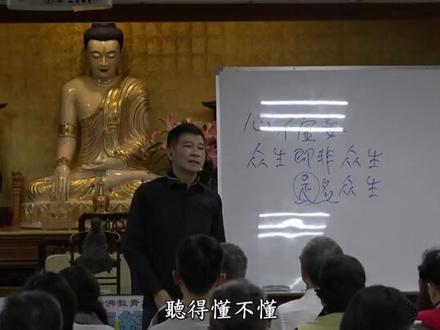 众生即非众生
是名众生
佛教青
聽得懂不懂